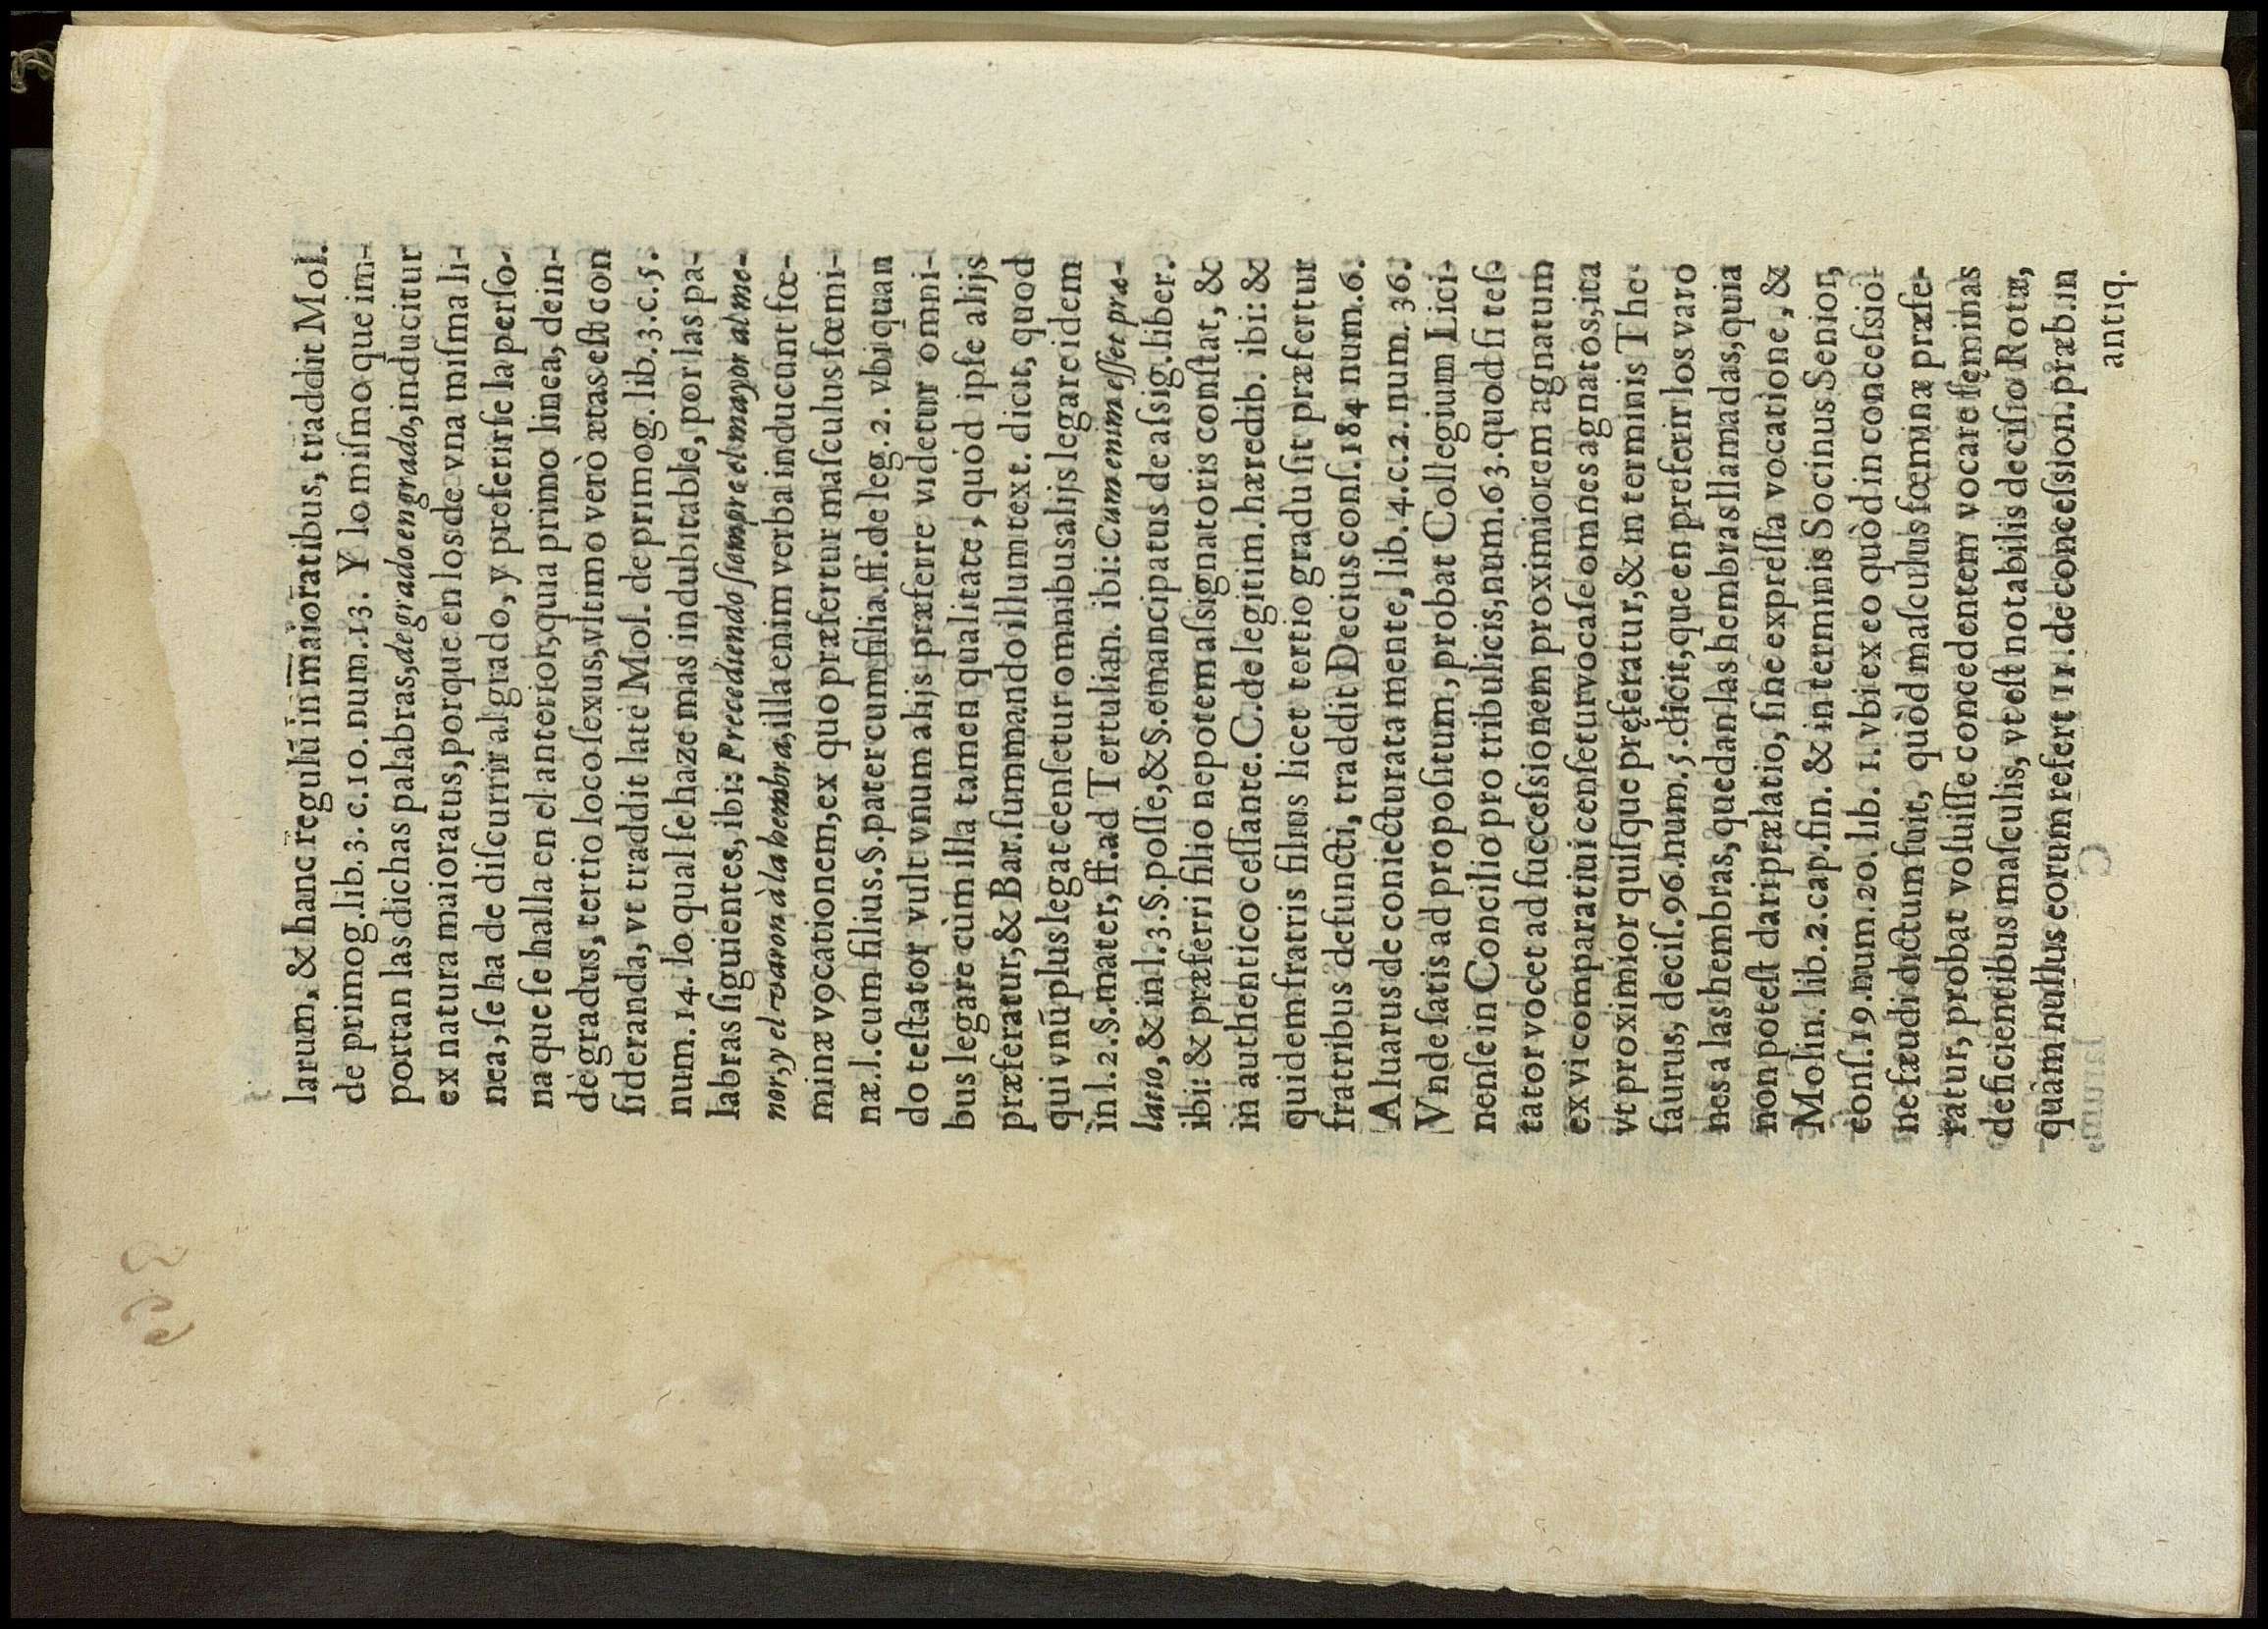 larum, & hanc regulū in maioratibus, traddit Mol.
de primog. lib. 3. c. 10. num. 13. Y lo miſmo que im-
portan las dichas palabras, de grado en grado, inducitur
ex natura maioratus, porque en los de vna miſma li-
nea, ſe ha de diſcurrir al grado, y preferirſe la perſo-
na que ſe halla en el anterior, qua primo linea, dein-
de gradus, tertio loco ſexus, vltimo verò ætas eſt con
ſideranda, vt traddit latè Mol. de primog. lib. 3. c. 5.
num. 14. lo qual ſe haze mas indubitable, por las pa-
labras ſiguientes, ibi: Precediendo ſiempre el mayor al me-
nor, y el varon à la hembra, illa enim verba inducunt fœ-
minæ vocationem, ex quo præfertur maſculus fœmi-
næ. l. cum filius. §. pater cum filia. ff. de leg. 2. vbi quan
do teſtator vult vnum alijs præferre videtur omni-
bus legare cùm illa tamen qualitate, quòd ipſe alijs
præferatur, & Bar. ſummando illum text. dicit, quod
qui vnū plus legat cenſetur omnibus alijs legare idem
in l. 2. §. mater, ff. ad Tertulian. ibi: Cum enim eſſet præ-
latio, & in l. 3. §. poſſe, & §. emancipatus de aſsig. liber.
ibi: & præferri filio nepotem aſsignatoris conſtat, &
in authentico ceſſante. C. de legitim. hæredib. ibi: &
quidem fratris filius licet tertio gradu ſit præfertur
fratribus defuncti, traddit Decius conſ. 184 num. 6.
Aluarus de coniecturata mente, lib. 4. c. 2. num. 36.
Vnde ſatis ad propoſitum, probat Collegium Lici-
nenſe in Concilio pro tribulicis, num. 63. quod ſi teſ-
tator vocet ad ſucceſsionem proximiorem agnatum
ex vi comparatiui cenſetur vocaſe omnes agnatos, ita
vt proximior quiſque pręferatur, & in terminis The-
ſaurus, deciſ. 96. num. 5. dicit, que en preferir los varo
nes a las hembras, quedan las hembras llamadas, quia
non poteſt dari prælatio, ſine expreſſa vocatione, &
Molin. lib. 2. cap. fin. & in terminis Socinus Senior,
conſ. 19. num. 20. lib. 1. vbi ex eo quòd in conceſsio-
ne fæudi dictum fuit, quòd maſculus fœminæ præfe-
ratur, probat voluiſſe concedentem vocare fęminas
deficientibus maſculis, vt eſt notabilis deciſio Rotæ,
quàm nullus eorum refert 11. de conceſsion. præb. in
antiq.